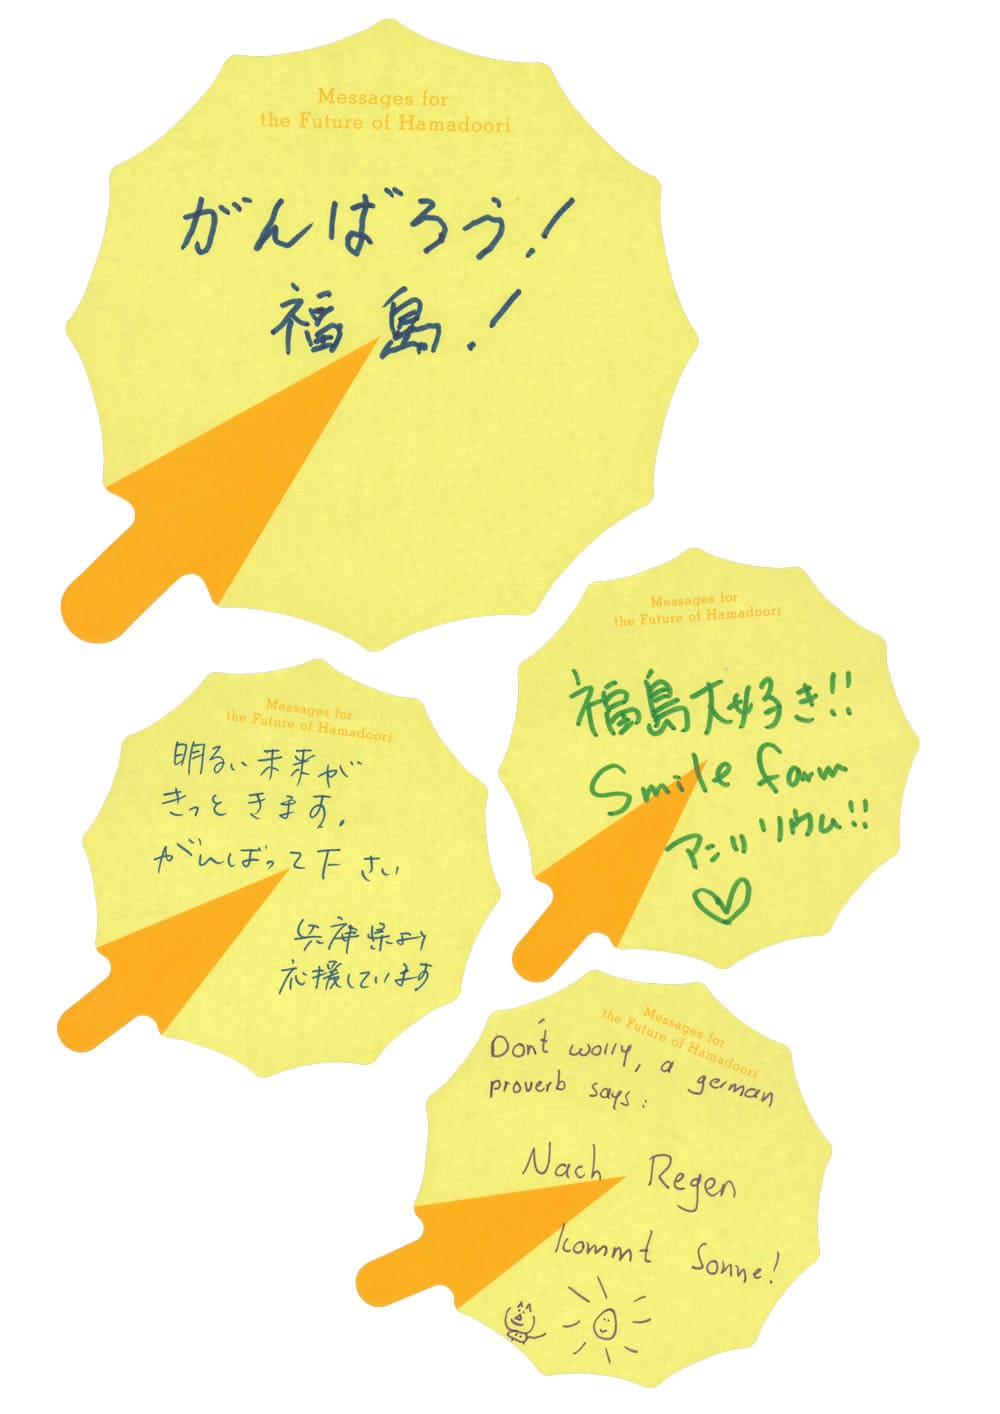 Messages for
the Future of Hamadoori
がんばろう!
福島!
Messages for
the Future of Hamadoori
福島大好き!!
Smile farm
アンリウム!!
Messages for
the Future of Hamadoori
明るい未来が
きっときます。
がんばって下さい
兵庫県より
応援しています
Messages for
the Future of Hamadoori
Don't worry, a german
proverb says:
Nach Regen
kommt Sonne!